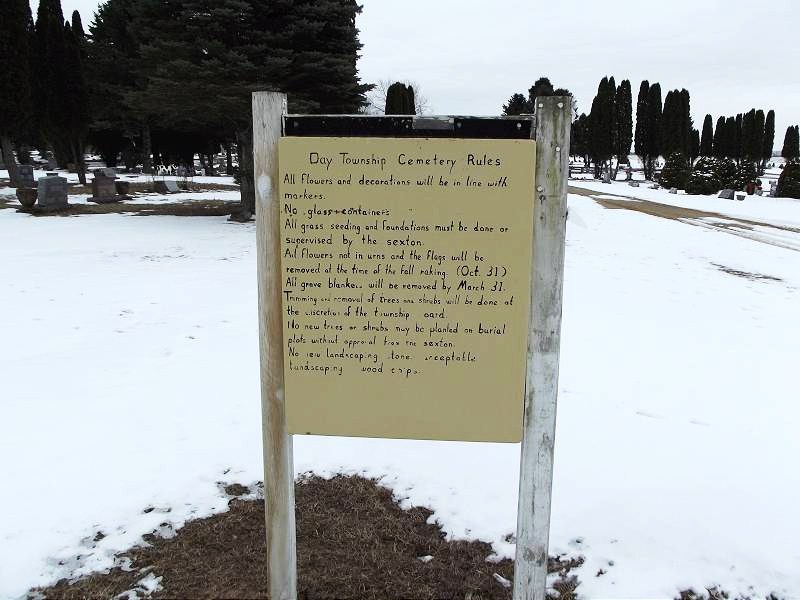 Day Township Cemetery Rules
All Flowers and decorations will be in line with
markers.
No glass containers
All grass seeding and foundations must be done or
supervised by the sexton.
All flowers not in urns and the flags will be
removed at the time of the fall raking. (Oct. 31)
All grave will be removed by March 31.
Trimming and removal of trees and shrubs will be done at
the of the township
No new trees or shrubs may be planted on burial
plots without approval from the sexton.
No landscaping